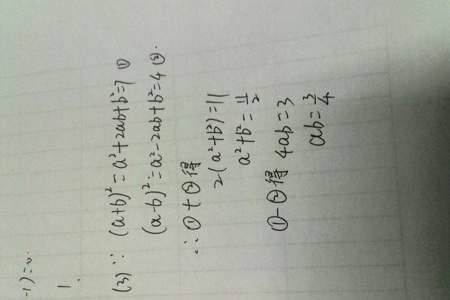 -1)=0.
1.
(3) ∵ (a+b)²=a²+2ab+b²=7 ①
(a-b)²=a²-2ab+b²=4 ②.
∴ ①+②得
2(a²+b²)=11
a²+b²=11/2
①-②得 4ab=3
ab=3/4